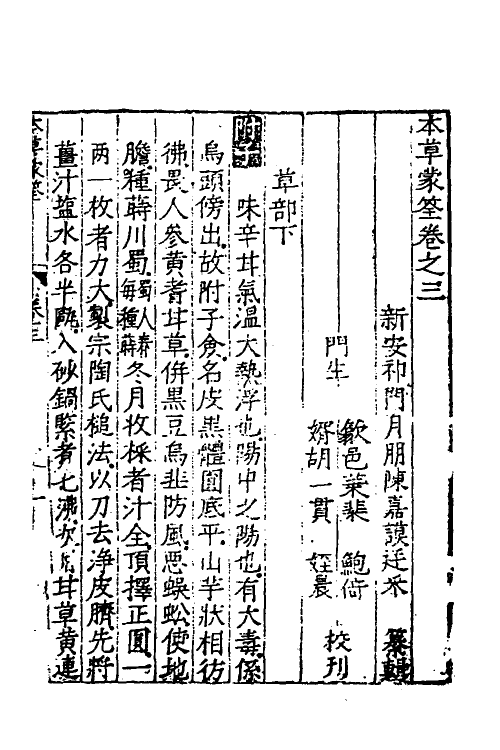 本草蒙筌卷之三
新安祁門月朋陳嘉謨廷采 纂輯
門生 歙邑葉棐 鮑倚
婿胡一貫 姪晨 校刊
草部下
附子
味辛甘氣溫大熱浮也陽中之陽也有大毒係
烏頭傍出故附子僉名皮黑體圓底平山芋狀相彷
彿畏人參黃耆甘草併黑豆烏韭防風惡蜈蚣使地
膽種蒔川蜀每蜀人種蒔春冬月收採者汁全頂擇正圓一
两一枚者力大製宗陶氏槌法以刀去淨皮臍先將
薑汁鹽水各半甌入砂鍋緊煮七沸次甘草黃連
本草蒙筌